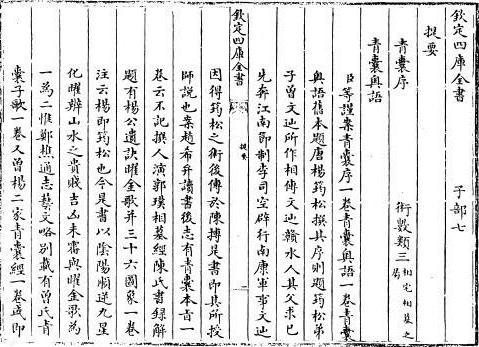 欽定四庫全書　　子部七
提要　　術數類三相宅相墓之屬
青囊序
青囊奧語
臣等謹案青囊序一卷青囊奧語一卷青囊
奧語舊本題唐楊筠松撰其序則題筠松弟
子曾文辿所作相傳文辿贛水人其父求已
先奔江南節制李司空辟行南康軍事文辿
欽定四庫全書　提要　二
因得筠松之術後傳於陳摶是書即其所授
師說也案趙希弁讀書後志有青囊本旨一
卷云不記撰人演郭璞相墓經陳氏書錄解
題有楊公遺訣曜金歌并三十六圖象一卷
注云楊即筠松也今是書以陰陽順逆九星
化曜辨山水之貴賤吉凶未審與曜金歌為
一為二惟鄭樵通志藝文略別載有曾氏青
囊子歌一卷又曾楊二家青囊經一卷或即